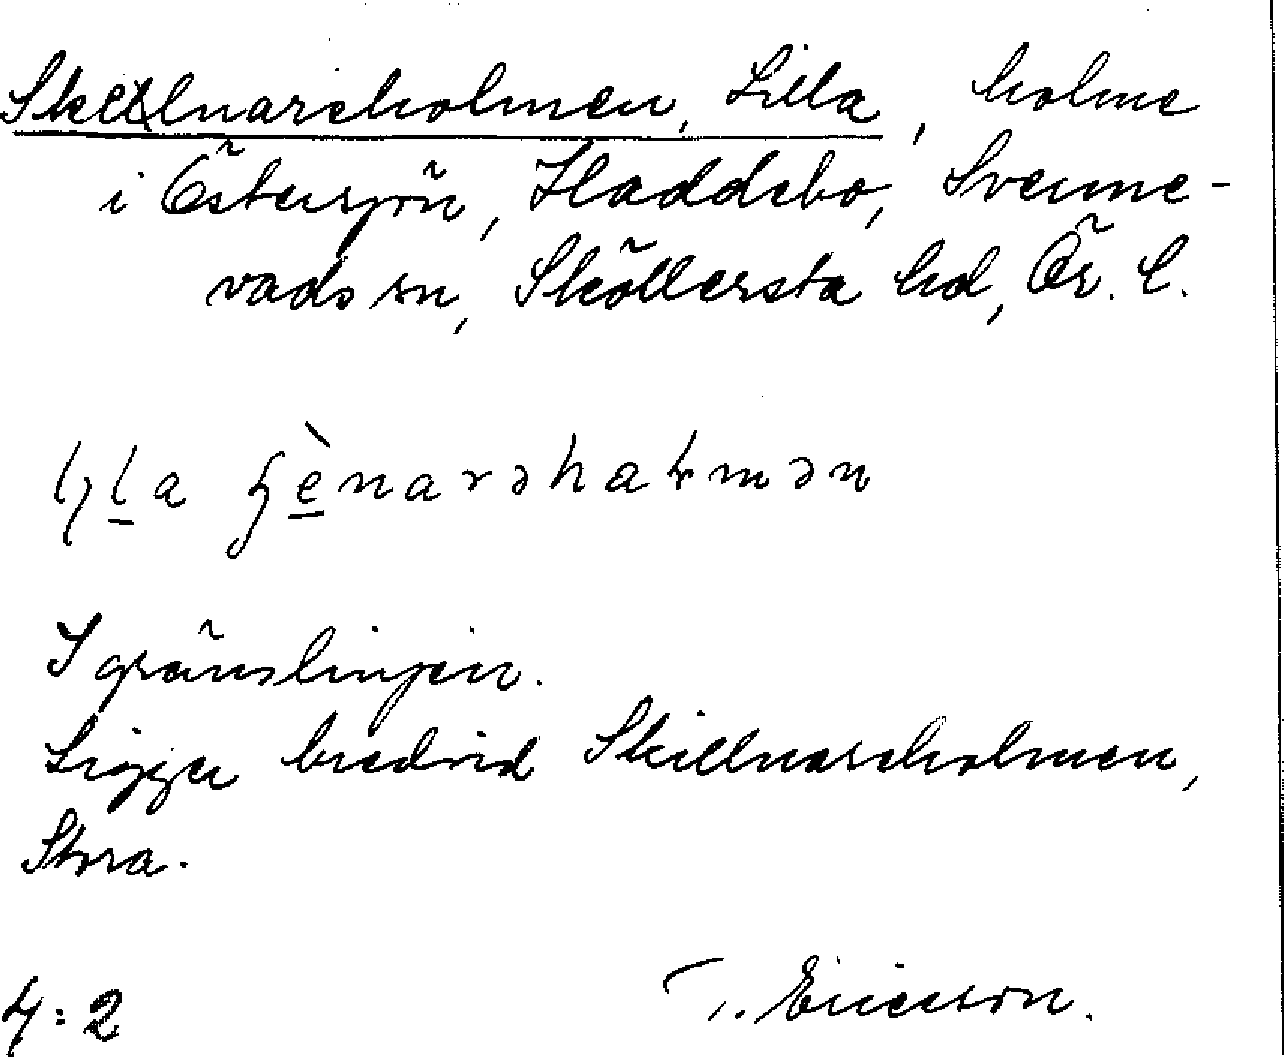 Skillnareholmen, Lilla, holme
i Östersjön, Haddebo, Svenne-
vads sn, Sköllersta hd, Ör. l.
I gränslinjen.
Ligger bredvid Skillnareholmen,
Stora.
4:2 T. Ericsson.